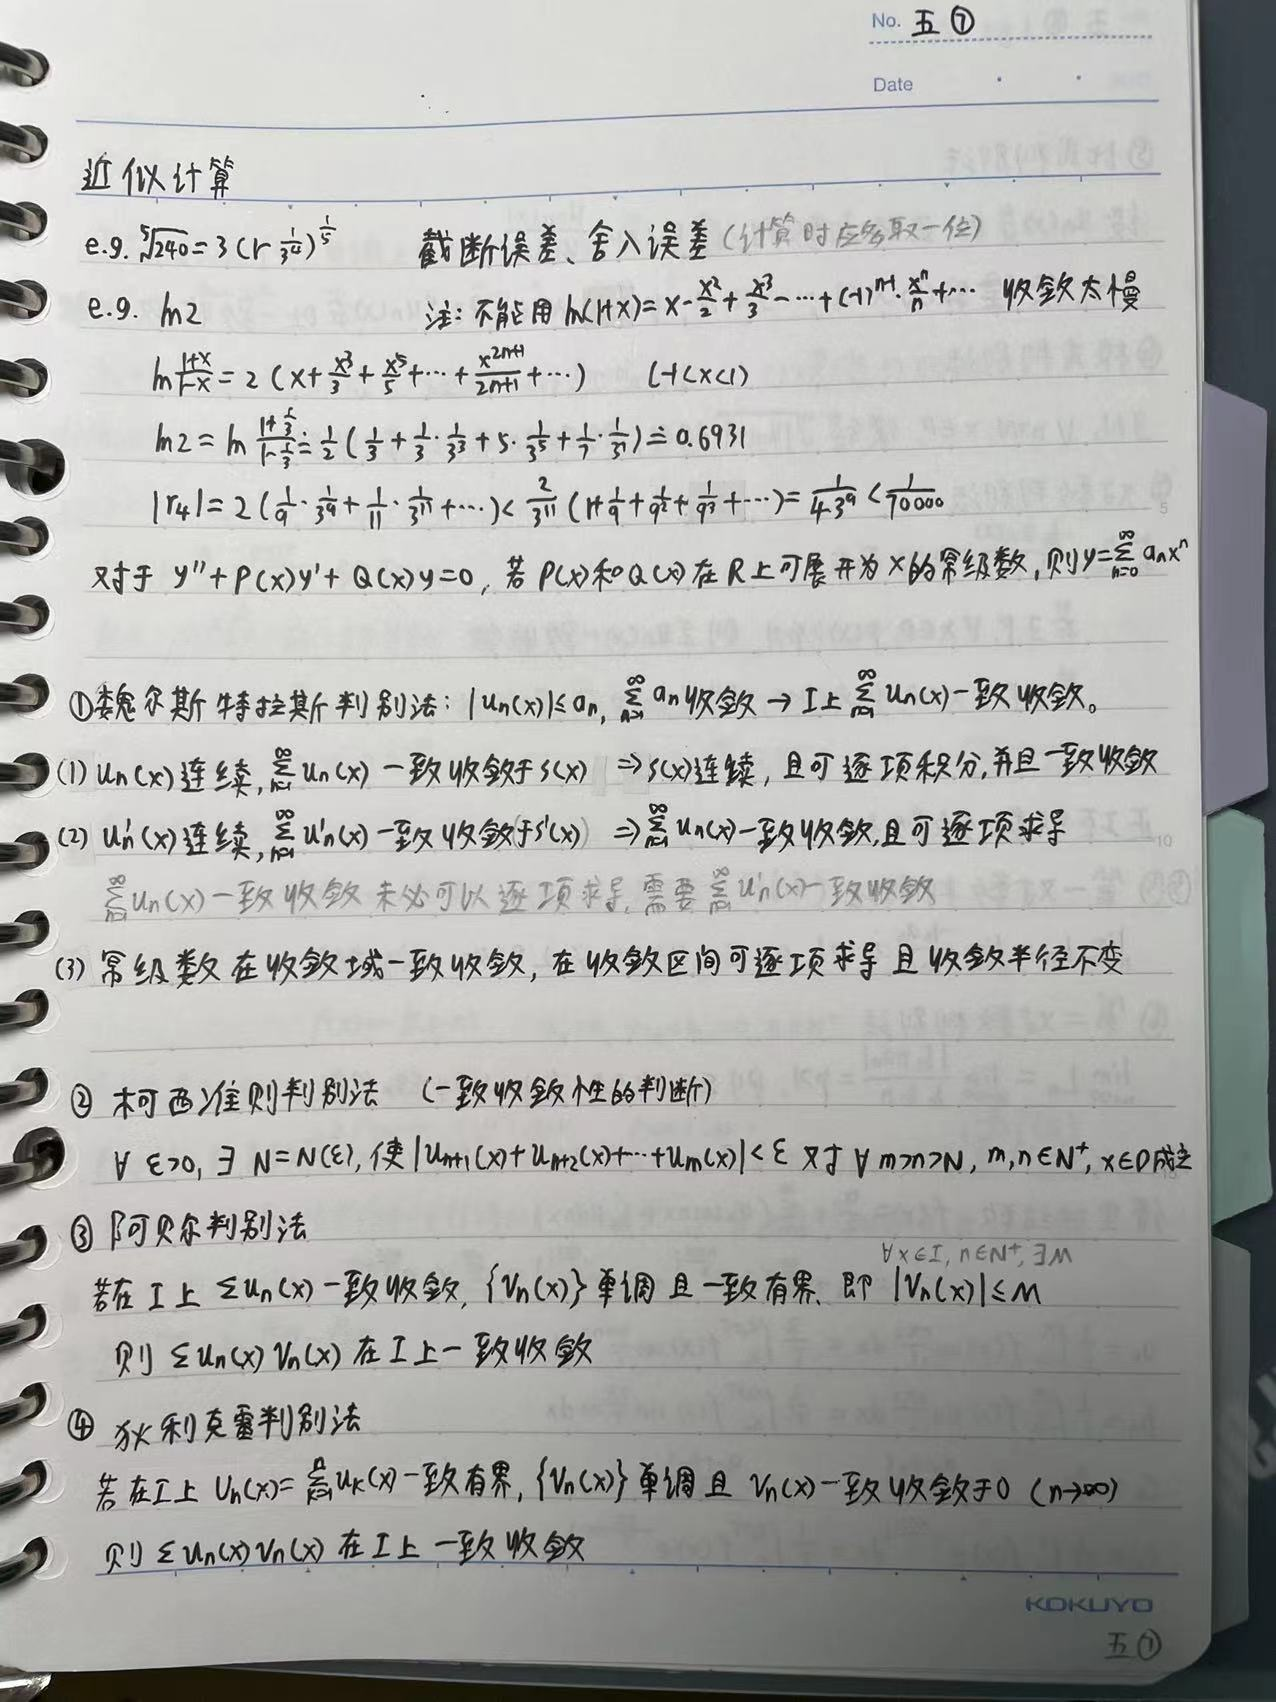 No. 五⑦
Date
近似计算
e.g. ⁵√240 = 3(1-1/3⁴)^(1/5) 截断误差、舍入误差(计算时应多取一位)
e.g. ln2 注:不能用 ln(1+x)=x-x²/2+x³/3-…+(-1)ⁿ⁻¹·xⁿ/n+… 收敛太慢
ln (1+x)/(1-x) = 2(x+x³/3+x⁵/5+…+x²ⁿ⁺¹/(2n+1)+…) (-1<x<1)
ln2 = ln (1+1/3)/(1-1/3) ≐ 1/2(1/3+1/3·1/3³+5·1/3⁵+1/7·1/3⁷) ≐ 0.6931
|r₄| = 2(1/9·1/3⁹+1/11·1/3¹¹+…) < 2/3¹¹(1+1/9+1/9²+1/9³+…) = 1/(4·3⁹) < 1/70000
对于 y''+P(x)y'+Q(x)y=0, 若P(x)和Q(x)在R上可展开为x的幂级数, 则y=∑_{n=0}^∞ aₙxⁿ
①魏尔斯特拉斯判别法: |uₙ(x)|≤aₙ, ∑_{n=1}^∞ aₙ收敛 → I上 ∑_{n=1}^∞ uₙ(x)一致收敛。
(1) uₙ(x)连续, ∑_{n=1}^∞ uₙ(x) 一致收敛于s(x) ⇒ s(x)连续, 且可逐项积分, 并且一致收敛
(2) u'ₙ(x)连续, ∑_{n=1}^∞ u'ₙ(x)一致收敛(于s'(x)) ⇒ ∑_{n=1}^∞ uₙ(x)一致收敛, 且可逐项求导
∑_{n=1}^∞ uₙ(x)一致收敛未必可以逐项求导, 需要∑_{n=1}^∞ u'ₙ(x)一致收敛
(3) 幂级数在收敛域一致收敛, 在收敛区间可逐项求导且收敛半径不变
② 柯西准则判别法 (一致收敛性的判断)
∀ ε>0, ∃ N=N(ε), 使|uₙ₊₁(x)+uₙ₊₂(x)+…+uₘ(x)|<ε 对 ∀ m>n>N, m,n∈N⁺, x∈D成立
③ 阿贝尔判别法
∀x∈I, n∈N⁺, ∃M
若在I上 ∑uₙ(x)一致收敛, {vₙ(x)}单调且一致有界, 即 |vₙ(x)|≤M
则 ∑uₙ(x)vₙ(x) 在I上一致收敛
④ 狄利克雷判别法
若在I上 Uₙ(x)=∑_{k=1}^n uₖ(x)一致有界, {vₙ(x)}单调且 vₙ(x)一致收敛于0 (n→∞)
则 ∑uₙ(x)vₙ(x) 在I上 一致收敛
KOKUYO
五①